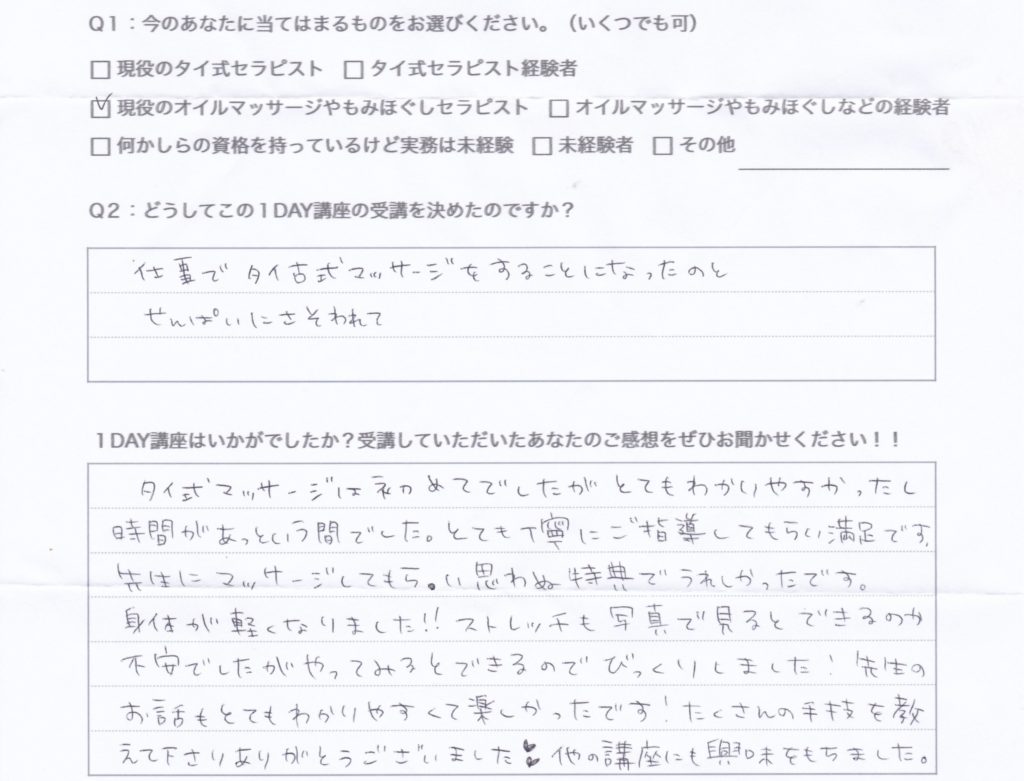 Q1：今のあなたに当てはまるものをお選びください。（いくつでも可）
□ 現役のタイ式セラピスト　□ タイ式セラピスト経験者
☑ 現役のオイルマッサージやもみほぐしセラピスト　□ オイルマッサージやもみほぐしなどの経験者
□ 何かしらの資格を持っているけど実務は未経験　□ 未経験者　□ その他
Q2：どうしてこの1DAY講座の受講を決めたのですか？
仕事で タイ古式マッサージをすることになったのと
せんぱいにさそわれて
1DAY講座はいかがでしたか？受講していただいたあなたのご感想をぜひお聞かせください！！
タイ式マッサージは初めてでしたが とてもわかりやすかったし
時間があっという間でした。とても丁寧にご指導してもらい満足です。
先生にマッサージしてもらい 思わぬ特典でうれしかったです。
身体が軽くなりました!! ストレッチも写真で見るとできるのか
不安でしたがやってみるとできるのでびっくりしました! 先生の
お話もとてもわかりやすくて楽しかったです! たくさんの手技を教
えて下さりありがとうございました 他の講座にも興味をもちました。